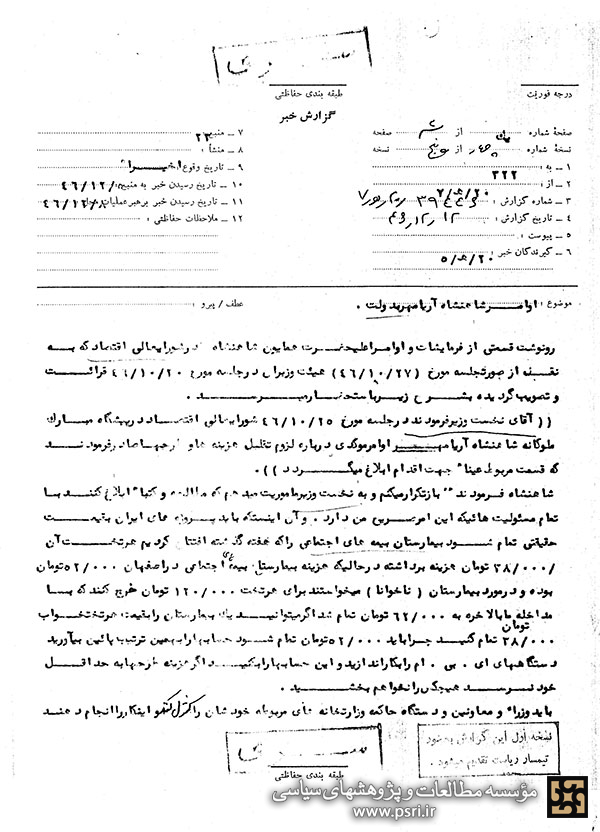 درجه فوریت
طبقه بندی حفاظتی
گزارش خبر
صفحهٔ شماره یک از صفحه
نسخهٔ شماره چهار از پنج نسخه
۱ ــ به : ۳۲۲
۲ ــ از : ۲۰ / هـ ۲
۳ ــ شماره گزارش :
۴ ــ تاریخ گزارش :
۵ ــ پیوست :
۶ ــ گیرندگان خبر : ۲۰ / هـ ۵
۷ ــ منبع : ۲۳
۸ ــ منشأ :
۹ ــ تاریخ وقوع اخیرا"
۱۰ ــ تاریخ رسیدن خبر به منبع ۴۶/۱۲/
۱۱ ــ تاریخ رسیدن خبر برهبر عملیات ۴۶/۱۲/۸
۱۲ ــ ملاحظات حفاظتی :
موضوع : اوامر شاهنشاه آریامهر به دولت . عطف / پیرو :
رونوشت قسمتی از فرمایشات و اوامر اعلیحضرت همایون شاهنشاه در شورایعالی اقتصاد که به
نقل از صورتجلسه مورخ (۴۶/۱۰/۲۷) هیئت وزیران در جلسه مورخ ۴۶/۱۰/۲۰ قرائت
و تصویب گردیده بشرح زیر باستحضار میرسد .
(( آقای نخست وزیر فرمودند در جلسه مورخ ۴۶/۱۰/۲۵ شورایعالی اقتصاد در پیشگاه مبارک
ملوکانه شاهنشاه آریامهر اوامر موکدی درباره لزوم تقلیل هزینه ها و طرحها صادر فرمودند
که قسمت مربوط عینا" جهت اقدام ابلاغ میگردد )).
شاهنشاه فرمودند" باز تکرار میکنم و به نخست وزیر ماموریت میدهم که مطالعه و کتبا" ابلاغ کنند با
تمام مسئولیت هائیکه این امر بی من دارد . و آن اینستکه باید پروژه های ایران بقیمت
حقیقی تمام شود بیمارستان بیمه های اجتماعی را که هفته گذشته افتتاح کردیم هر تختش آن
۳۸/۰۰۰ تومان هزینه برداشته در حالیکه هزینه بیمارستان بیمه های اجتماعی در اصفهان ۵۲/۰۰۰ تومان
بوده و در مورد بیمارستان ( ناخوانا ) میخواستند برای هر تخت ۱۲۰/۰۰۰ تومان خرج کنند که با
مداخله ما بالاخره به ۶۲/۰۰۰ تومان تمام شد اگر میتوانید یک بیمارستان را بقیمت هر تختخواب
۳۸/۰۰۰ تومان تمام کنید چرا باید ۵۲/۰۰۰ تومان تمام شود حسابها را بهمین ترتیب پائین بیآورید
دستگاههای ای . بی . ام را بکار اندازید و این حسابها را بکنید اگر هزینه طرحها به حداقل
خود نرسد هیچکس را نخواهم بخشید .
باید وزراء و معاونین و دستگاه حاکمه وزارتخانه های مربوطه خودشان را کنترل کنند و اینکار را انجام دهند
نسخه اول این گزارش به خود
تیمسار ریاست تقدیم میشود .
طبقه بندی حفاظتی
مؤسسه مطالعات و پژوهشهای سیاسی
www.psri.ir